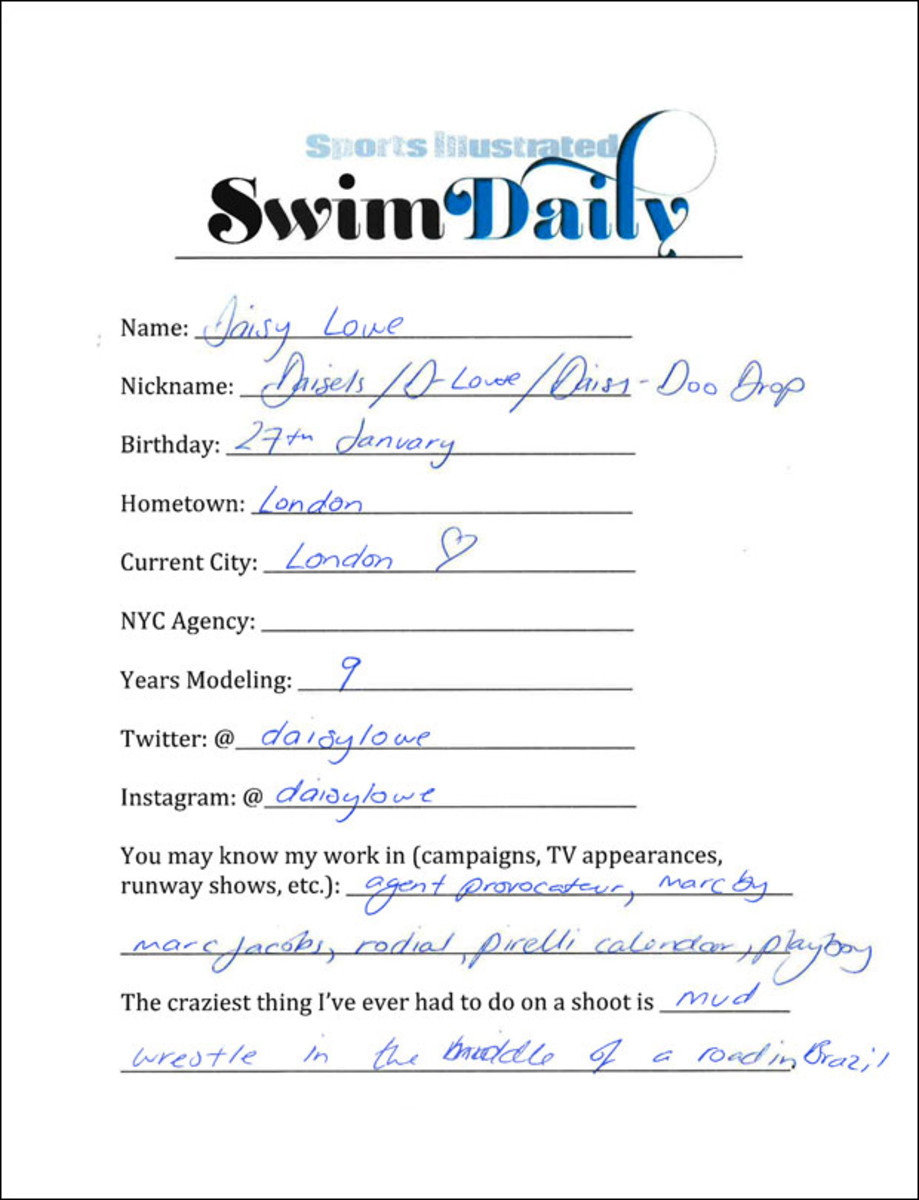 Sports Illustrated
Swim Daily
Name: Daisy Lowe
Nickname: Daisels / D-Lowe / Daisy-Doo Drop
Birthday: 27th January
Hometown: London
Current City: London ♡
NYC Agency:
Years Modeling: 9
Twitter: @ daisylowe
Instagram: @ daisylowe
You may know my work in (campaigns, TV appearances,
runway shows, etc.): agent provocateur, marc by
marc jacobs, rodial, pirelli calendar, playboy
The craziest thing I've ever had to do on a shoot is mud
wrestle in the middle of a road in Brazil